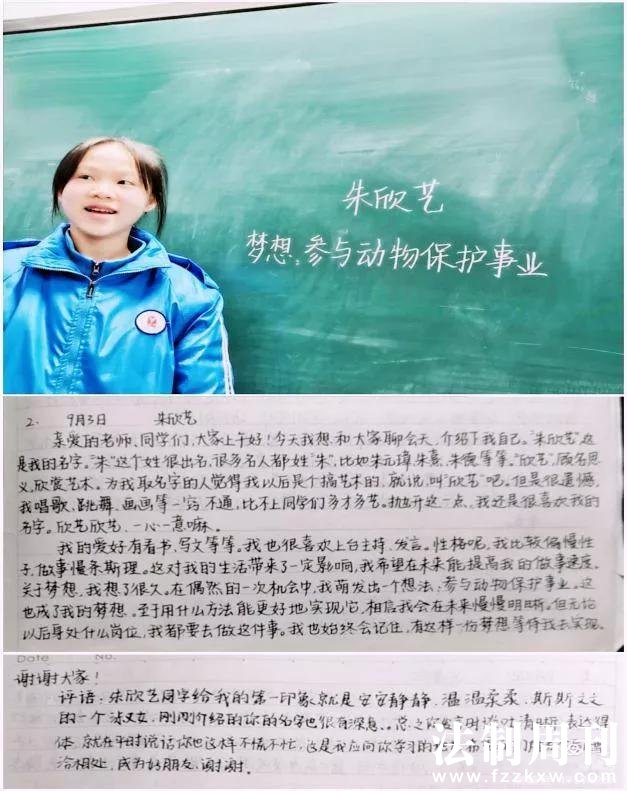 朱欣艺
梦想:参与动物保护事业
2. 9月3日 朱欣艺
亲爱的老师、同学们,大家上午好!今天我想和大家聊会天,介绍下我自己。“朱欣艺”这
是我的名字。“朱”这个姓很出名,很多名人都姓“朱”,比如朱元璋、朱熹、朱德等等。“欣艺”,顾名思
义,欣赏艺术。为我取名字的人觉得我以后是个搞艺术的,就说,叫“欣艺”吧。但是很遗憾,
我唱歌、跳舞、画画等一窍不通,比不上同学们多才多艺。抛开这一点,我还是很喜欢我的
名字。欣艺欣艺,一心一意嘛。
我的爱好有看书、写文等等。我也很喜欢上台主持、发言。性格呢,我比较偏慢性
子,做事慢条斯理。这对我的生活带来了一定影响,我希望在未来能提高我的做事速度。
关于梦想,我想了很久。在偶然的一次机会中,我萌发出一个想法:参与动物保护事业。这
也成了我的梦想。至于用什么方法能更好地实现它,相信我会在未来慢慢明晰。但无论
以后身处什么岗位,我都要去做这件事。我也始终会记住,有这样一份梦想等待我去实现。
Date No.
谢谢大家!
评语:朱欣艺同学给我的第一印象就是安安静静、温温柔柔、斯斯文文
的一个淑女,刚刚介绍的你的名字也很有深意。总之你发言时谈吐清晰,表达得
体,就在平时说话你也这样不慌不忙,这是我应向你学习的
洽相处,成为好朋友,谢谢。
法制周刊
www.fzzkxw.com